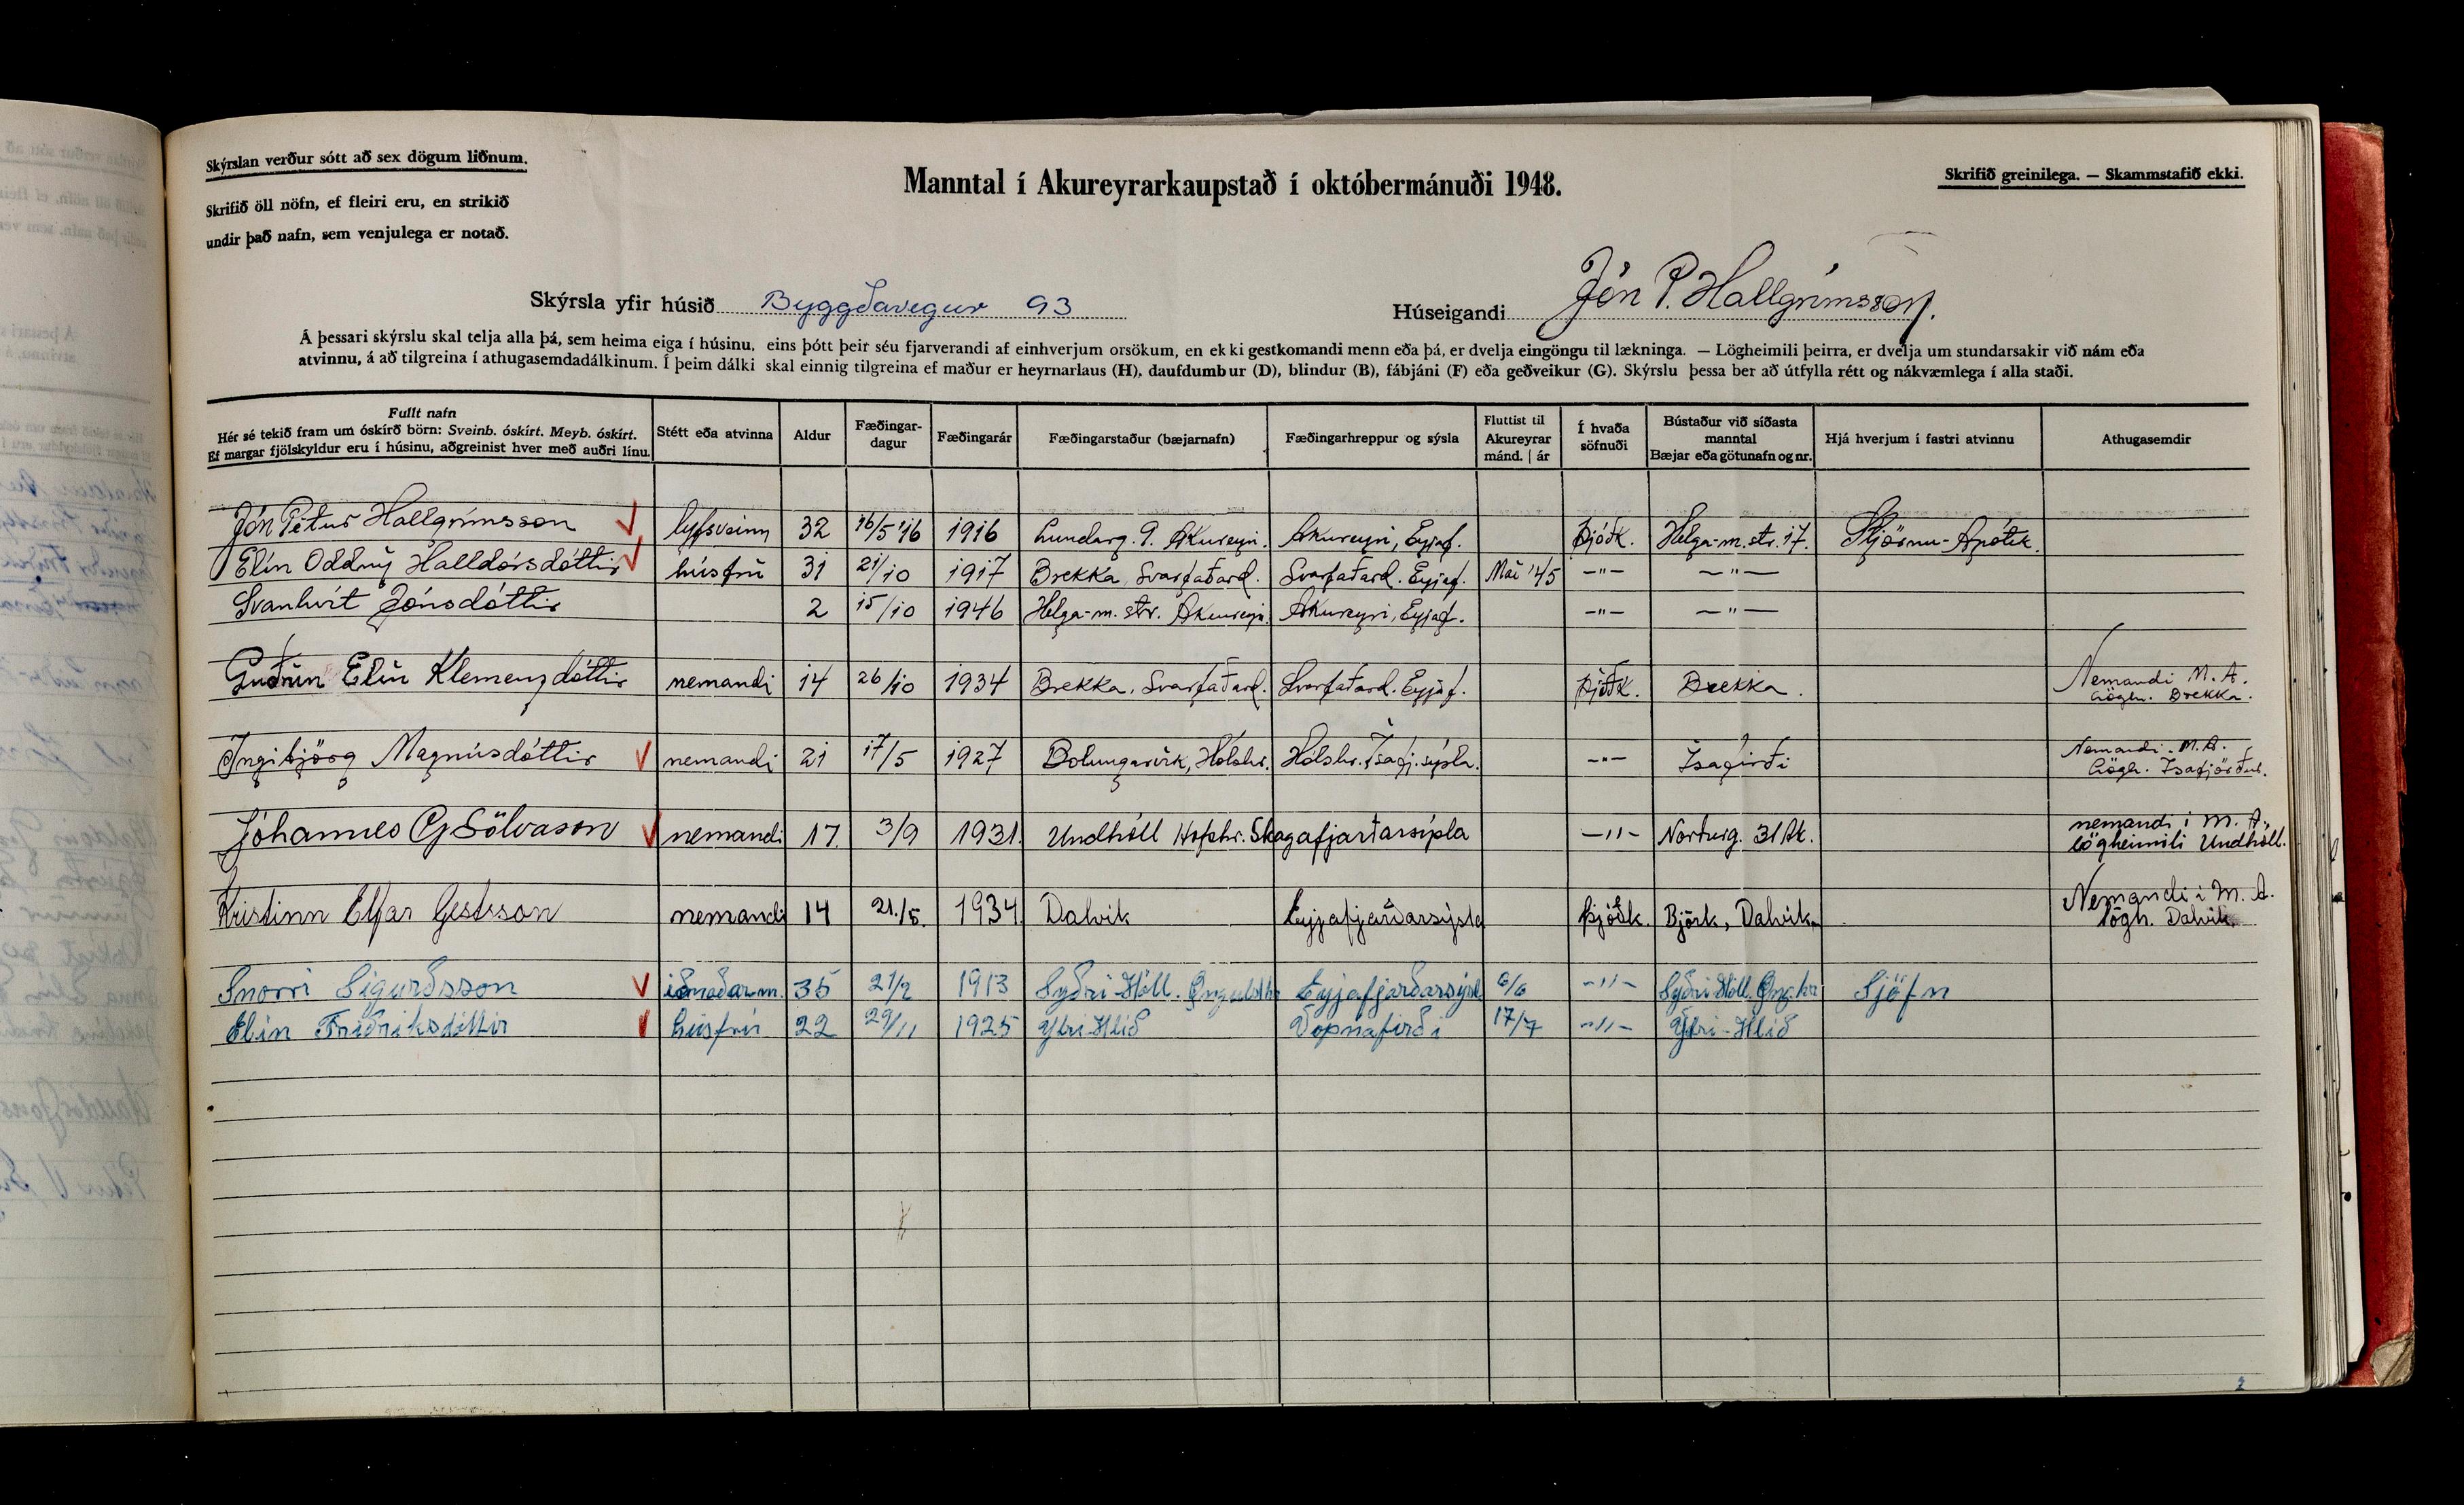 Skýrslan verður sótt að sex dögum liðnum.
Skrifið öll nöfn, ef fleiri eru, en strikið
undir það nafn, sem venjulega er notað.
Manntal í Akureyrarkaupstað í októbermánuði 1948.
Skrifið greinilega. — Skammstafið ekki.
Skýrsla yfir húsið Byggðavegur 93
Húseigandi Jón P. Hallgrímsson.
Á þessari skýrslu skal telja alla þá, sem heima eiga í húsinu, eins þótt þeir séu fjarverandi af einhverjum orsökum, en ekki gestkomandi menn eða þá, er dvelja eingöngu til lækninga. — Lögheimili þeirra, er dvelja um stundarsakir við nám eða
atvinnu, á að tilgreina í athugasemdadálkinum. Í þeim dálki skal einnig tilgreina ef maður er heyrnarlaus (H), daufdumbur (D), blindur (B), fábjáni (F) eða geðveikur (G). Skýrslu þessa ber að útfylla rétt og nákvæmlega í alla staði.
Fullt nafn
Hér sé tekið fram um óskírð börn: Sveinb. óskírt. Meyb. óskírt.
Ef margar fjölskyldur eru í húsinu, aðgreinist hver með auðri línu.
Stétt eða atvinna
Aldur
Fæðingar-
dagur
Fæðingarár
Fæðingarstaður (bæjarnafn)
Fæðingarhreppur og sýsla
Fluttist til
Akureyrar
mánd. | ár
Í hvaða
söfnuði
Bústaður við síðasta
manntal
Bæjar eða götunafn og nr.
Hjá hverjum í fastri atvinnu
Athugasemdir
Jón Pétur Hallgrímsson lyfsveinn 32 16/5 '16 1916 Lundarg. 9. Akureyri. Akureyri, Eyjaf. Þjóðk. Helga-m.str. 17. Stjörnu-Apótek.
Elín Oddný Halldórsdóttir húsfrú 31 21/10 1917 Brekka, Svarfaðard. Svarfaðard. Eyjaf. Maí '45 —"— —"—
Svanhvít Jónsdóttir 2 15/10 1946 Helga-m. str. Akureyri. Akureyri, Eyjaf. —"— —"—
Guðrún Elín Klemenzdóttir nemandi 14 26/10 1934 Brekka, Svarfaðard. Svarfaðard. Eyjaf. Þjóðk. Brekka. Nemandi M.A.
Lögh. Brekka.
Ingibjörg Magnúsdóttir nemandi 21 17/5 1927 Bolungarvík, Hólshr. Hólshr. Ísafj.sýsla. —"— Ísafirði Nemandi M.A.
Lögh. Ísafjörður.
Jóhannes Gj Sölvason nemandi 17. 3/9 1931. Undhóll Hofshr. Skagafjarðarsýsla —"— Norðurg. 31 Ak. nemandi í M.A.
lögheimili Undhóll.
Kristinn Elfar Gestsson nemandi 14 21./5. 1934 Dalvík Eyjafjarðarsýsla Þjóðk. Björk, Dalvík. Nemandi í M.A.
lögh. Dalvík.
Snorri Sigurðsson iðnaðarm. 35 21/2 1913 Syðri-Hóll. Öngulsthr Eyjafjarðarsýsl 6/6 —"— Syðri-Hóll. Öng.hr Sjöfn
Elín Friðriksdóttir húsfrú 22 29/11 1925 Ytri-Hlíð Vopnafirði 17/7 —"— Ytri-Hlíð